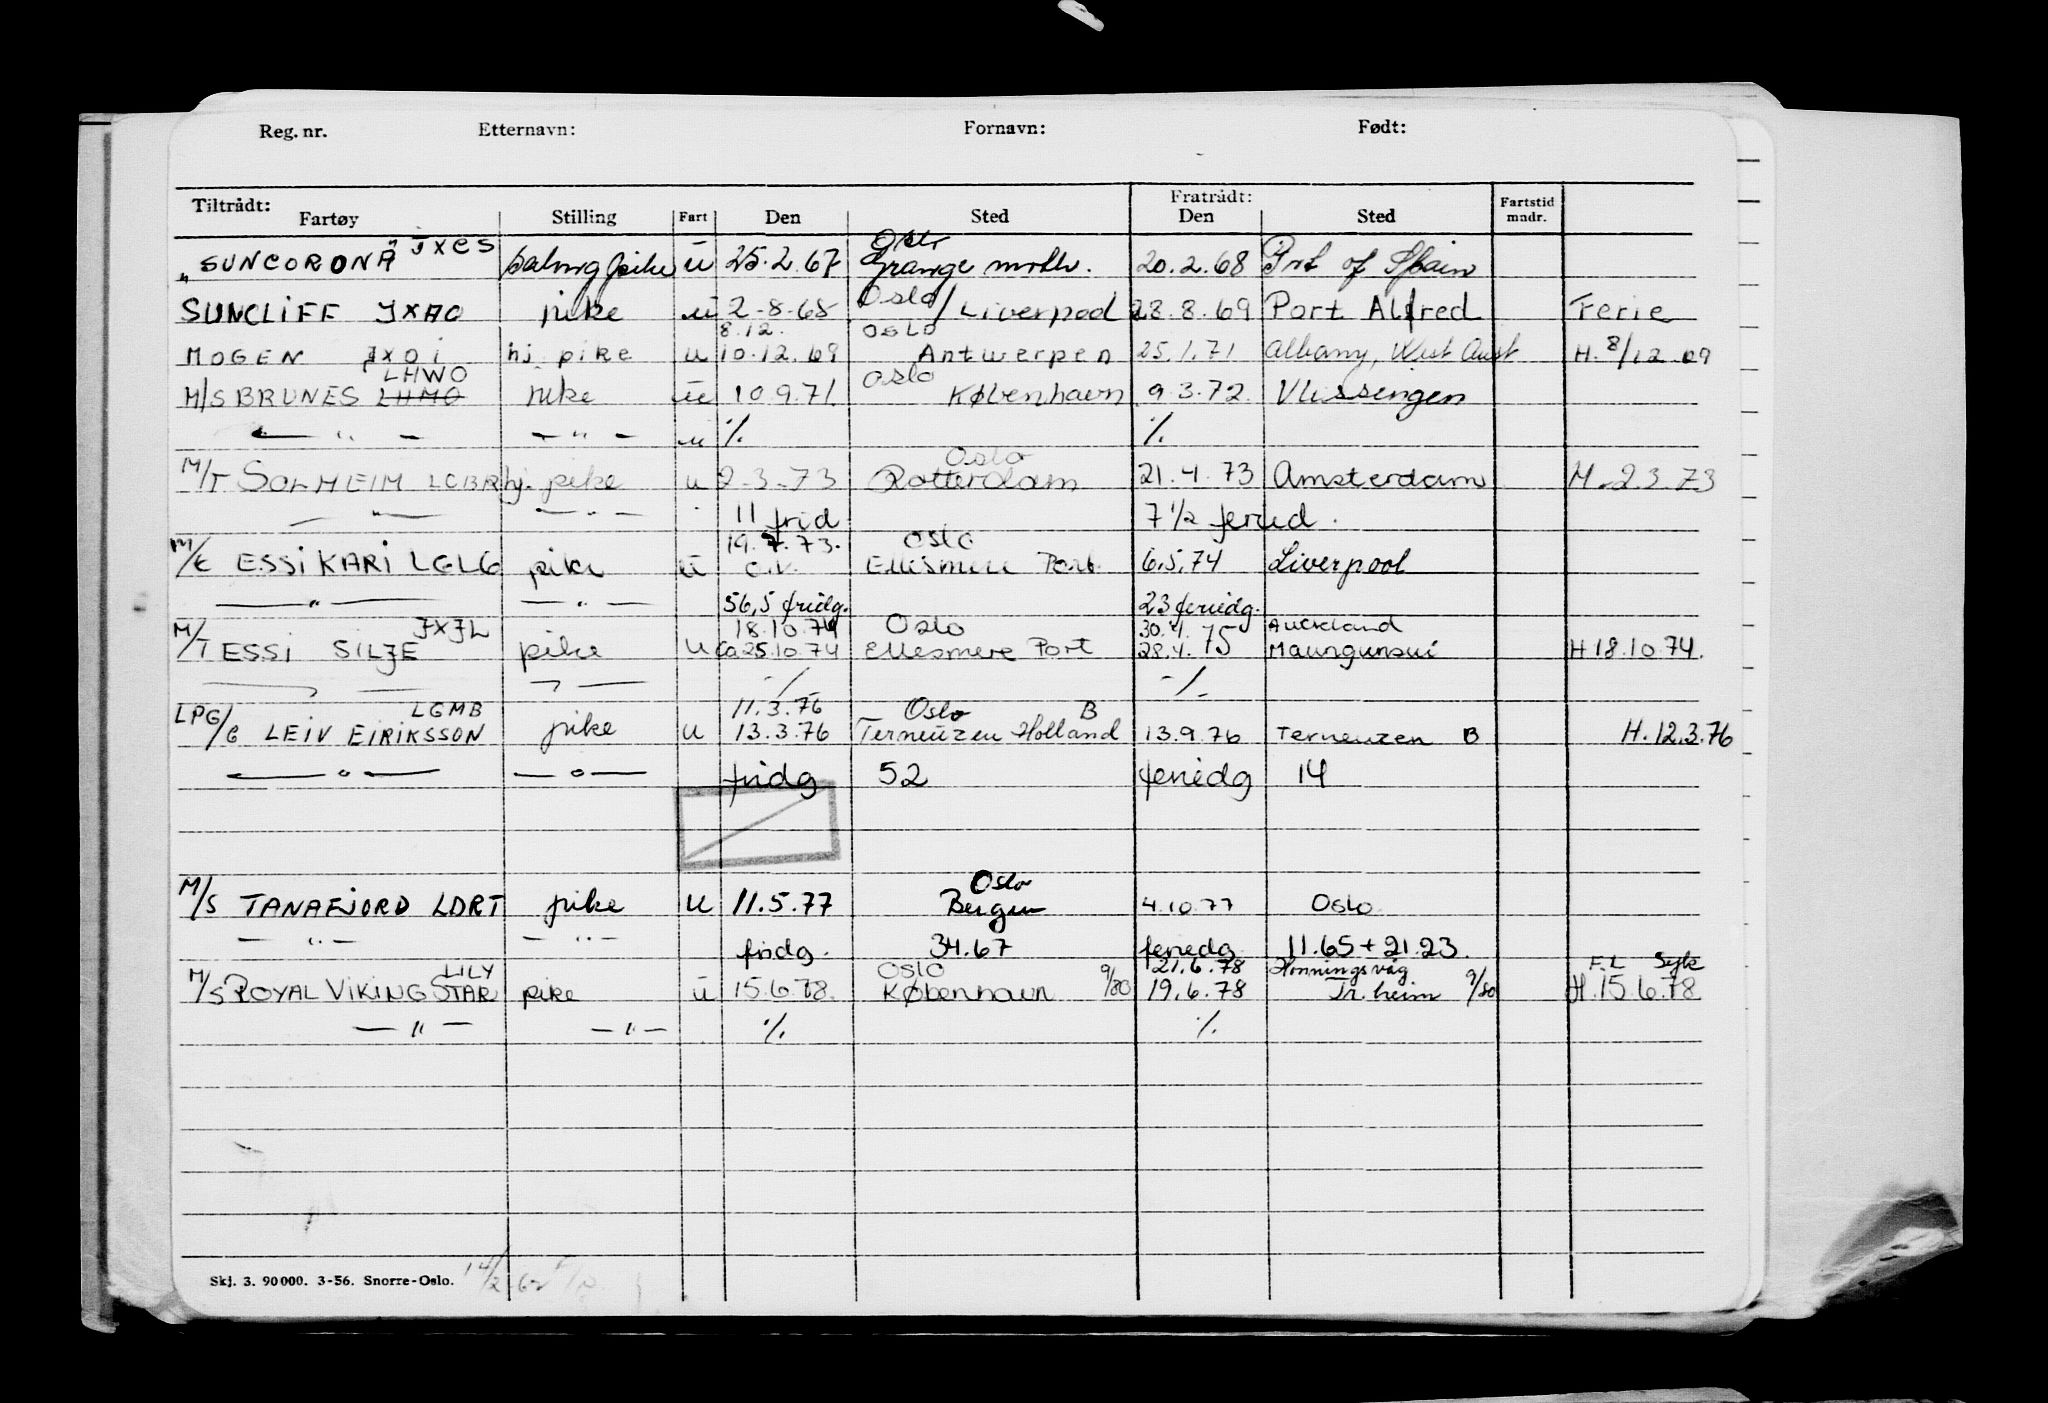 Reg. nr. Etternavn: Fornavn: Født:
Tiltrådt: Fratrådt:
Fartøy Stilling Fart Den Sted Den Sted Fartstid mndr.
JXCS Oslo
"SUNCORONA" pike u 25.2.67 Grangemoth. 20.2.68 Prt of Spain
Oslo
SUNCLIFF JXAO pike u 2-8-68 / Liverpool 28.8.69 Port Alfred Ferie
8.12. OSLO
MOGEN JXOI hj. pike u 10.12.69 Antwerpen 25.1.71 Albany, West Aust H. 8/12 69
LHWO Oslo
M/S BRUNES LHMO pike u 10.9.71. København 9.3.72. Vlissengen
— " — — " — u ./. ./.
Oslo
M/T SOLHEIM LCBR hj. pike u 2-3-73 Rotterdam 21.4.73 Amsterdam H. 2.3.73
— " — — " — 11 frid 7 1/2 feried.
19.7.73. Oslo
ESSI KARI LGLG pike u Ellesmere Port 6.5.74 Liverpool
— " — — " — 56,5 fridg. 23 feriedg.
JXJL 18.10.74 Oslo 30.4. Auckland
M/T ESSI SILJE pike u ca 25.10.74 Ellesmere Port 28.4.75 H 18.10.74.
./. ./.
LGMB 11.3.76 Oslo B
LPG/C LEIV EIRIKSSON pike u 13.3.76 Terneuzen Holland 13.9.76 Terneuzen B H. 12.3.76
— " — — " — fridg 52 feriedg 14
Oslo
M/S TANAFJORD LDRT pike u 11.5.77 Bergen 4.10.77 Oslo
— " — — " — fridg. 34.67 feriedg 11.65 + 21.23
LILY Oslo 21.6.78 Honningsvåg F.L
M/S ROYAL VIKING STAR pike u 15.6.78. København 9/80 19.6.78 Tr. heim 9/80 H. 15.6.78
— " — — " — ./. ./.
Skj. 3. 90000. 3-56. Snorre-Oslo.